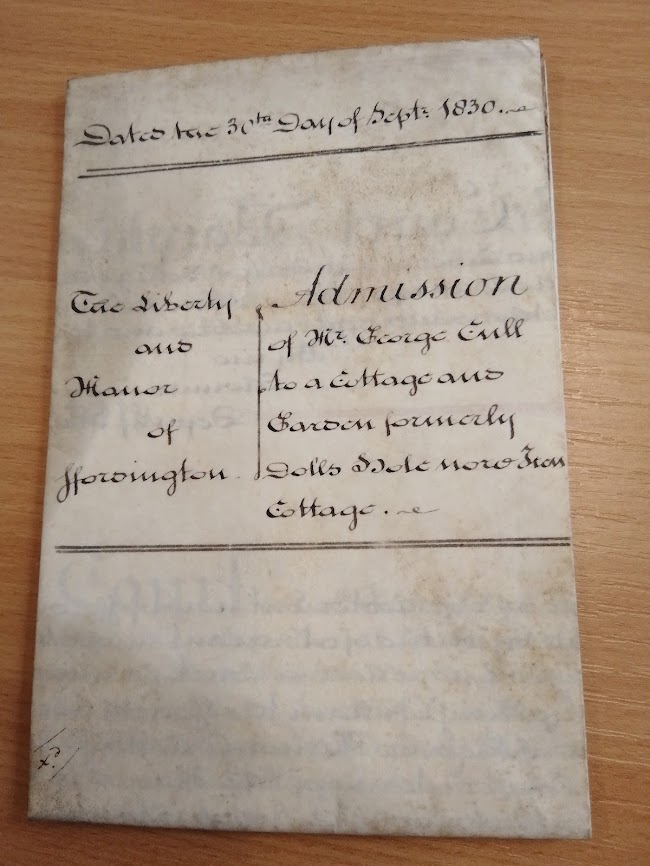 Dated the 30th Day of Septr. 1830.
The Liberty
and
Manor
of
Ffordington.
Admission
of Mr. George Cull
to a Cottage and
Garden formerly
Dolls Hole now
Cottage.